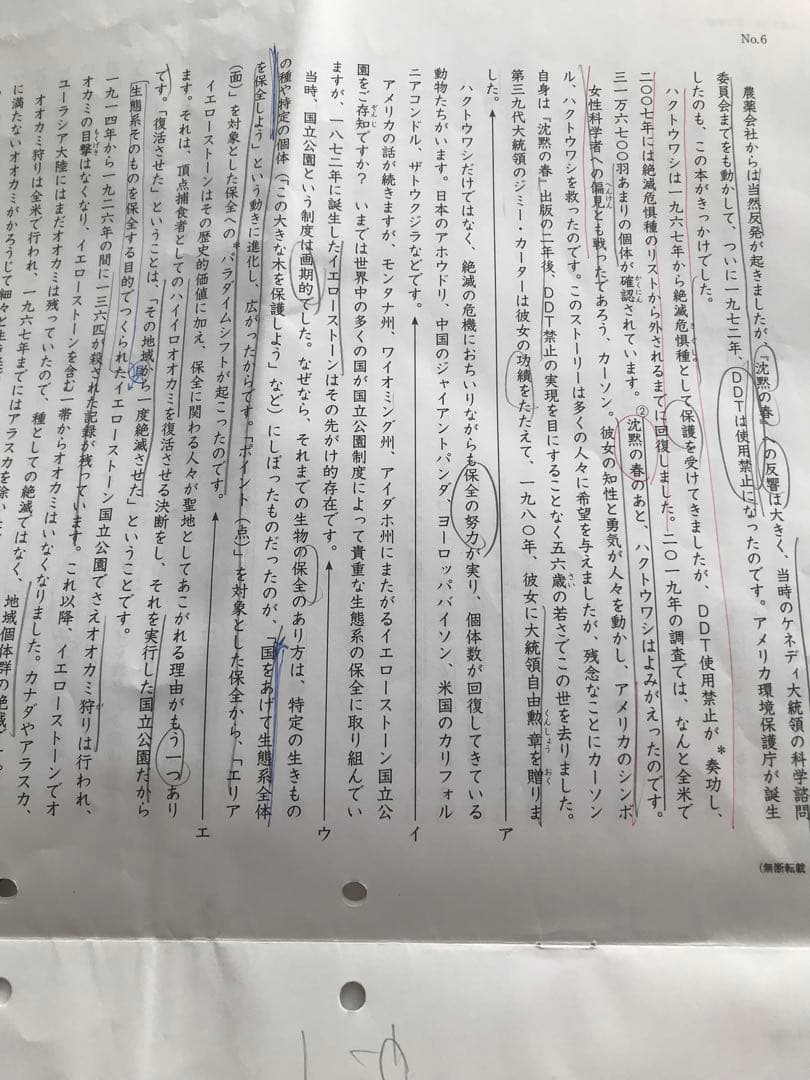 No.6
農薬会社からは当然反発が起きましたが、『沈黙の春』への反響は大きく、当時のケネディ大統領の科学諮問
委員会までをも動かして、ついに一九七二年、DDTは使用禁止になったのです。アメリカ環境保護庁が誕生
したのも、この本がきっかけでした。
ハクトウワシは一九六七年から絶滅危惧種として保護を受けてきましたが、DDT使用禁止が*奏功し、
二〇〇七年には絶滅危惧種のリストから外されるまでに回復しました。二〇一九年の調査では、なんと全米で
三一万六七〇〇羽あまりの個体が確認されています。②沈黙の春のあと、ハクトウワシはよみがえったのです。
女性科学者への偏見とも戦ったであろう、カーソン。彼女の知性と勇気が人々を動かし、アメリカのシンボ
ル、ハクトウワシを救ったのです。このストーリーは多くの人々に希望を与えましたが、残念なことにカーソン
自身は『沈黙の春』出版の二年後、DDT禁止の実現を目にすることなく五六歳の若さでこの世を去りました。
第三九代大統領のジミー・カーターは彼女の功績をたたえて、一九八〇年、彼女に大統領自由勲章を贈りま
した。
ア
ハクトウワシだけではなく、絶滅の危機におちいりながらも保全の努力が実り、個体数が回復してきている
動物たちがいます。日本のアホウドリ、中国のジャイアントパンダ、ヨーロッパバイソン、米国のカリフォル
ニアコンドル、ザトウクジラなどです。
イ
アメリカの話が続きますが、モンタナ州、ワイオミング州、アイダホ州にまたがるイエローストーン国立公
園をご存知ですか? いまでは世界中の多くの国が国立公園制度によって貴重な生態系の保全に取り組んでい
ますが、一八七二年に誕生したイエローストーンはその先がけ的存在です。
ウ
当時、国立公園という制度は画期的でした。なぜなら、それまでの生物の保全のあり方は、特定の生きもの
の種や特定の個体(「この大きな木を保護しよう」など)にしぼったものだったのが、「国をあげて生態系全体
を保全しよう」という動きに進化し、広がったからです。「ポイント(点)」を対象とした保全から、「エリア
(面)」を対象とした保全への*パラダイムシフトが起こったのです。
エ
イエローストーンはその歴史的価値に加え、保全に関わる人々が聖地としてあこがれる理由がもう一つあり
ます。それは、頂点捕食者としてのハイイロオオカミを復活させる決断をし、それを実行した国立公園だから
です。「復活させた」ということは、「その地域から一度絶滅させた」ということです。
生態系そのものを保全する目的でつくられたイエローストーン国立公園でさえオオカミ狩りは行われ、
一九一四年から一九二六年の間に一三六匹が殺された記録が残っています。これ以降、イエローストーンでオ
オカミの目撃はなくなり、イエローストーンを含む一帯からオオカミはいなくなりました。カナダやアラスカ、
ユーラシア大陸にはまだオオカミは残っていたので、種としての絶滅ではなく、地域個体群の絶滅です。
オオカミ狩りは全米で行われ、一九六七年までにはアラスカを除い
に満たないオオカミがかろうじて細々と生き
(無断転載